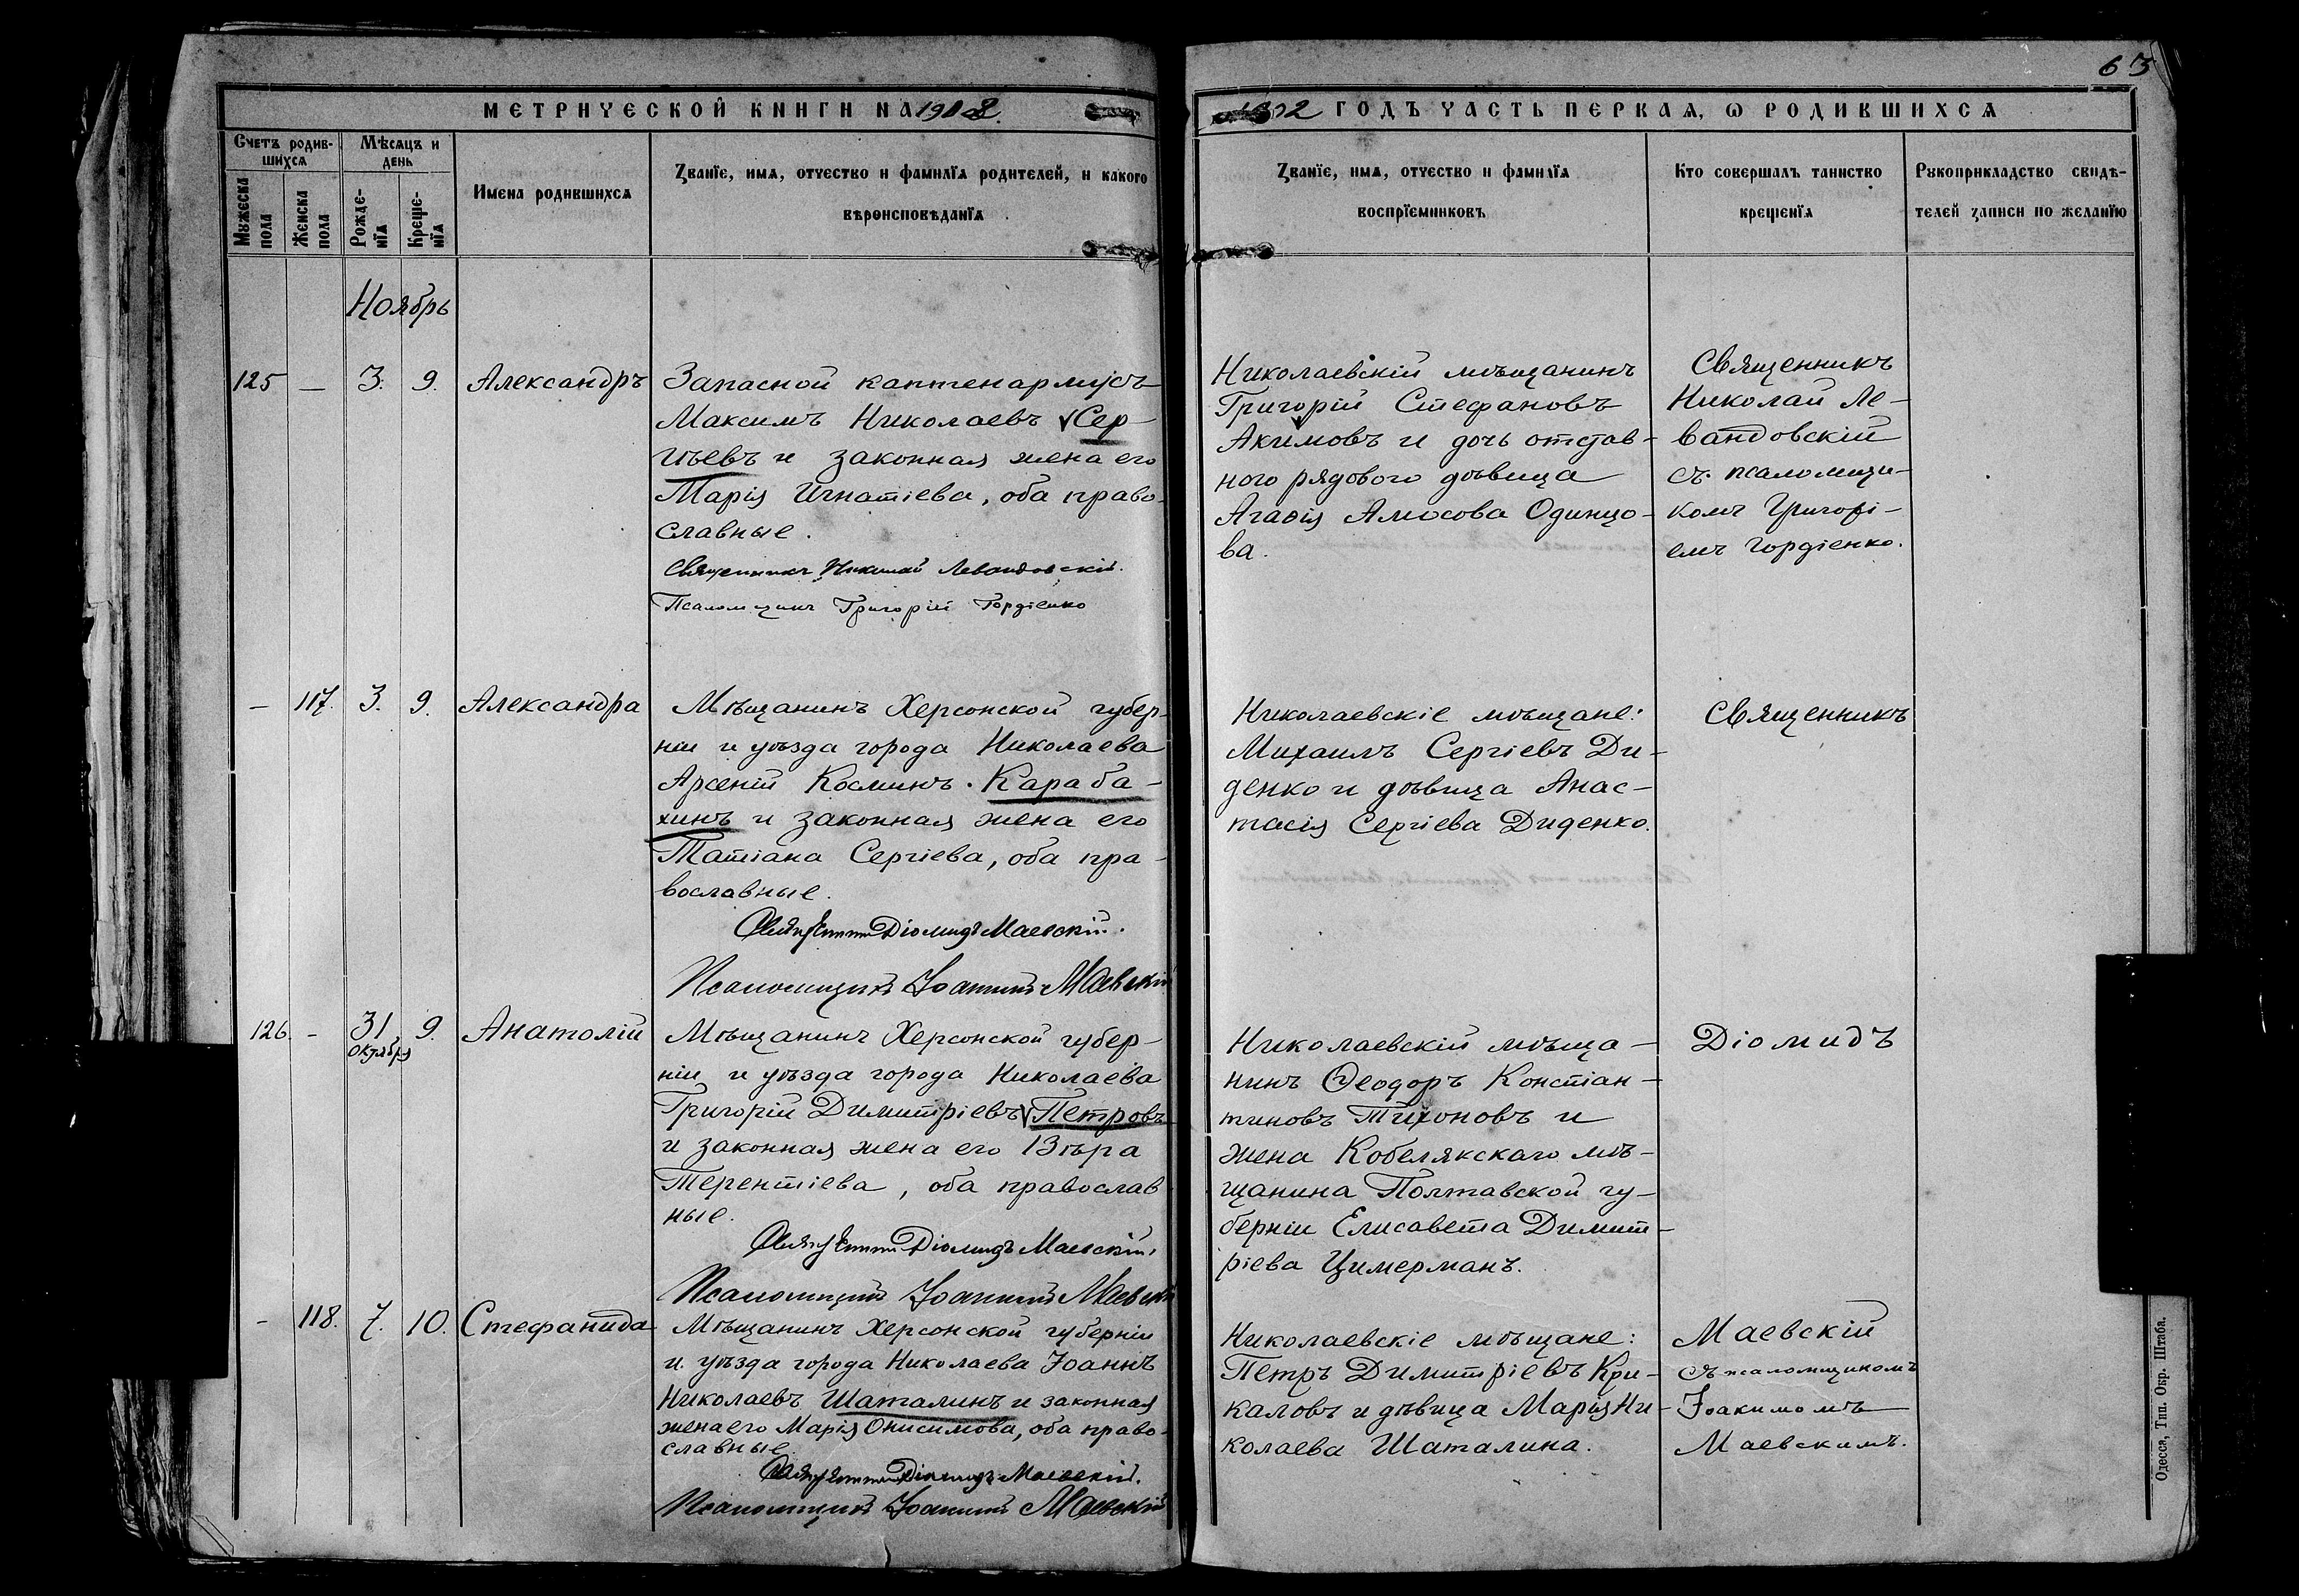 63
МЕТРИЧЕСКОЙ КНИГИ НА 1902
1902 ГОДЪ ЧАСТЬ ПЕРВАЯ, Ѡ РОДИВШИХСЯ
Счетъ родив-
шихся
Мужеска
пола
Женска
пола
Мѣсяцъ и
день
Рожде-
нїя
Креще-
нїя
Имена родившихся
Званїе, имя, отчество и фамилїя родителей, и какого
вѣроисповѣданїя
Званїе, имя, отчество и фамилїя
воспрїемниковъ
Кто совершалъ таинство
крещенїя
Рукоприкладство свидѣ-
телей записи по желанїю
Ноябрь
125 — 3. 9. Александръ
Запасной каптенармусъ
Максимъ Николаевъ Сер-
гѣевъ и законная жена его
Марія Игнатіева, оба право-
славные.
Священникъ Николай Левандовскій.
Псаломщикъ Григорій Гордіенко
Николаевскій мѣщанинъ
Григорій Стефановъ
Акимовъ и дочь отстав-
ного рядового дѣвица
Агаѳія Амосова Одинцо-
ва.
Священникъ
Николай Ле-
вандовскій
съ псаломщи-
комъ Григорі-
емъ Гордіенко.
— 117. 3. 9. Александра
Мѣщанинъ Херсонской губер-
ніи и уѣзда города Николаева
Арсеній Косминъ Караба-
хинъ и законная жена его
Татіана Сергіева, оба пра-
вославные.
Священникъ Діомидъ Маевскій.
Псаломщикъ Іоакимъ Маевскій
Николаевскіе мѣщане:
Михаилъ Сергіевъ Ди-
денко и дѣвица Анас-
тасія Сергіева Диденко.
Священникъ
126. - 31 октября 9. Анатолій
Мѣщанинъ Херсонской губер-
ніи и уѣзда города Николаева
Григорій Димитріевъ Петровъ
и законная жена его Вѣра
Терентіева, оба православ
ные.
Священникъ Діомидъ Маевскій.
Псаломщикъ Іоакимъ Маевскій
Николаевскій мѣща-
нинъ Ѳеодоръ Констан-
тиновъ Тихоновъ и
жена Кобелякскаго мѣ-
щанина Полтавской гу-
берніи Елисавета Димит-
ріева Цимерманъ.
Діомидъ
- 118. 7. 10. Стефанида
Мѣщанинъ Херсонской губерніи
и уѣзда города Николаева Іоаннъ
Николаевъ Шаталинъ и законная
жена его Марія Онисимова, оба право-
славные.
Священникъ Діомидъ Маевскій.
Псаломщикъ Іоакимъ Маевскій
Николаевскіе мѣщане:
Петръ Димитріевъ Кри-
каловъ и дѣвица Марія Ни-
колаева Шаталина.
Маевскій
съ псаломщикомъ
Іоакимомъ
Маевскимъ.
Одесса, Тип. Окр. Штаба.